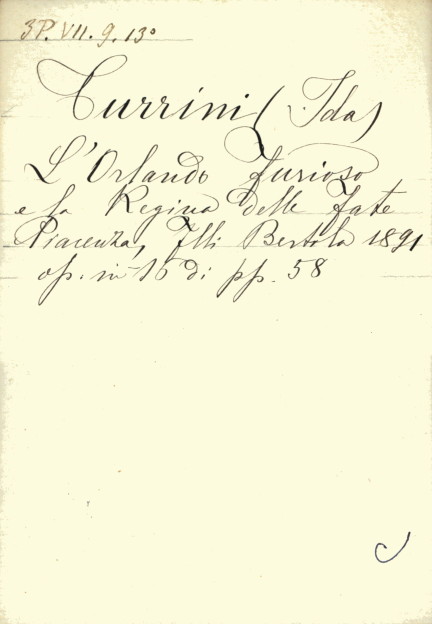 3P. VII. 9. 13°
Turrini (Ida)
L'Orlando furioso
e la Regina delle fate
Piacenza, Flli Bertola 1891
op. in 16 di pp. 58